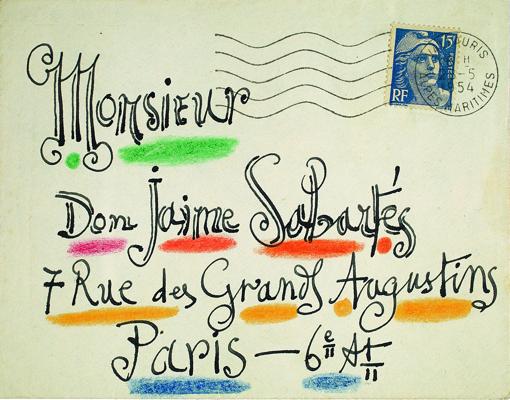 15F
POSTES
RF
URIS
H
-5
54
PES MARITIMES
Monsieur
Don Jaime Sabartés
7 Rue des Grands Augustins
Paris — 6e Art